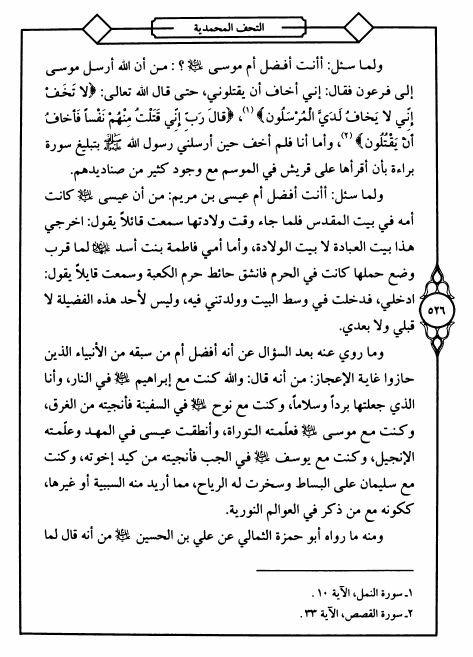 التحف المحمدية
ولما سئل: أأنت أفضل أم موسى ؟: من أن الله أرسل موسى
إلى فرعون فقال: إني أخاف أن يقتلوني، حتى قال الله تعالى: ﴿لَا تَخَفْ
إِنِّي لَا يَخَافُ لَدَيَّ الْمُرْسَلُونَ﴾ (١)، ﴿قَالَ رَبِّ إِنِّي قَتَلْتُ مِنْهُمْ نَفْساً فَأَخَافُ
أَنْ يَقْتُلُونِ﴾ (٢)، وأما أنا فلم أخف حين أرسلني رسول الله ﷺ بتبليغ سورة
براءة بأن أقرأها على قريش في الموسم مع وجود كثير من صناديدهم.
ولما سئل: أأنت أفضل أم عيسى بن مريم: من أن عيسى كانت
أمه في بيت المقدس فلما جاء وقت ولادتها سمعت قائلاً يقول: اخرجي
هذا بيت العبادة لا بيت الولادة، وأما أمي فاطمة بنت أسد لما قرب
وضع حملها كانت في الحرم فانشق حائط حرم الكعبة وسمعت قايلاً يقول:
ادخلي، فدخلت في وسط البيت وولدتني فيه، وليس لأحد هذه الفضيلة لا
قبلي ولا بعدي.
٥٢٦
وما روي عنه بعد السؤال عن أنه أفضل أم من سبقه من الأنبياء الذين
حازوا غاية الإعجاز: من أنه قال: والله كنت مع إبراهيم في النار، وأنا
الذي جعلتها برداً وسلاماً، وكنت مع نوح في السفينة فأنجيته من الغرق،
وكنت مع موسى فعلمته التوراة، وأنطقت عيسى في المهد وعلمته
الإنجيل، وكنت مع يوسف في الجب فأنجيته من كيد إخوته، وكنت
مع سليمان على البساط وسخرت له الرياح، مما أريد منه السببية أو غيرها،
ككونه مع من ذكر في العوالم النورية.
ومنه ما رواه أبو حمزة الثمالي عن علي بن الحسين من أنه قال لما
١ـ سورة النمل، الآية ١٠.
٢ـ سورة القصص، الآية ٣٣.